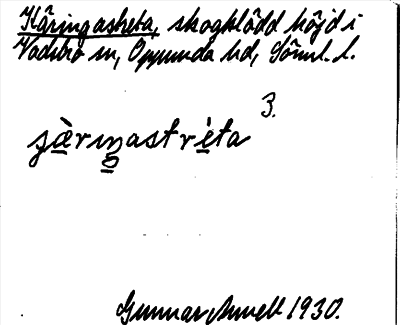 Käringasketa, skogklädd höjd i
Vadsbro sn, Oppunda hd, Söml. l.
3.
jæ̀rıŋastrèta
Gunnar Arnell 1930.